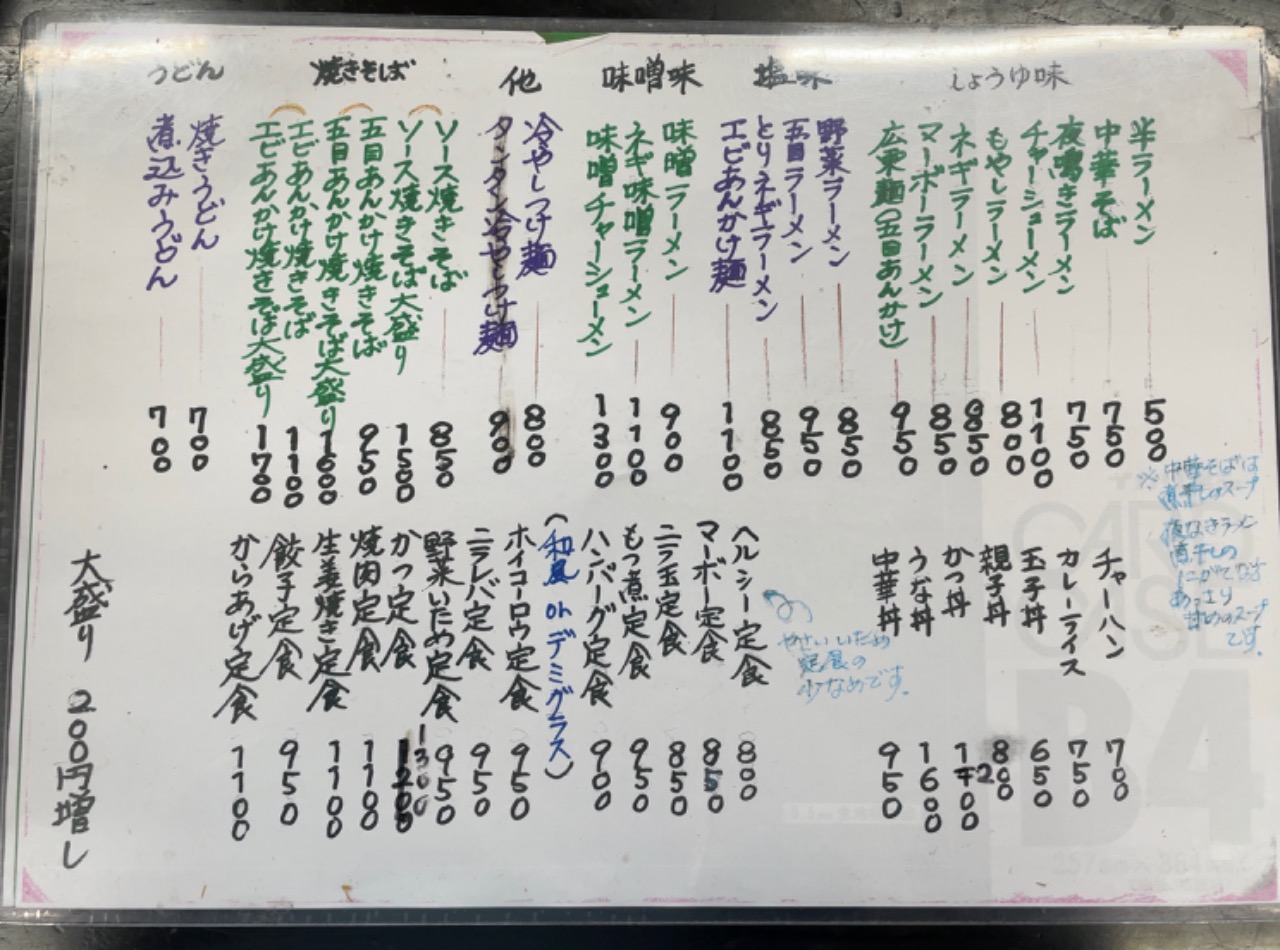 しょうゆ味
半ラーメン 500
中華そば 750
夜鳴きラーメン 750
チャーシューメン 1100
もやしラーメン 800
ネギラーメン 850
マーボーラーメン 850
広東麺(五目あんかけ) 950
塩味
野菜ラーメン 850
五目ラーメン 950
とりネギラーメン 850
エビあんかけ麺 1100
味噌味
味噌ラーメン 900
ネギ味噌ラーメン 1100
味噌チャーシューメン 1300
他
冷やしつけ麺 800
タンタン冷やしつけ麺 900
焼きそば
ソース焼きそば 850
ソース焼きそば大盛り 1500
五目あんかけ焼きそば 950
五目あんかけ焼きそば大盛り 1600
エビあんかけ焼きそば 1100
エビあんかけ焼きそば大盛り 1700
うどん
焼きうどん 700
煮込みうどん 700
※中華そばは
煮干しのスープ
夜なきラーメン
煮干しの
にがてな方
あっさり
甘めのスープ
です。
チャーハン 700
カレーライス 750
玉子丼 650
親子丼 800
かつ丼
うな丼 1600
中華丼 950
やさいいため
定食の
少なめです。
ヘルシー定食 800
マーボー定食 850
ニラ玉定食 850
もつ煮定食 950
ハンバーグ定食 900
(和風orデミグラス)
ホイコーロウ定食 950
ニラレバ定食 950
野菜いため定食 950
かつ定食 1300
焼肉定食 1100
生姜焼き定食 1100
餃子定食 950
からあげ定食 1100
大盛り 200円増し
CARD
CASE
B4